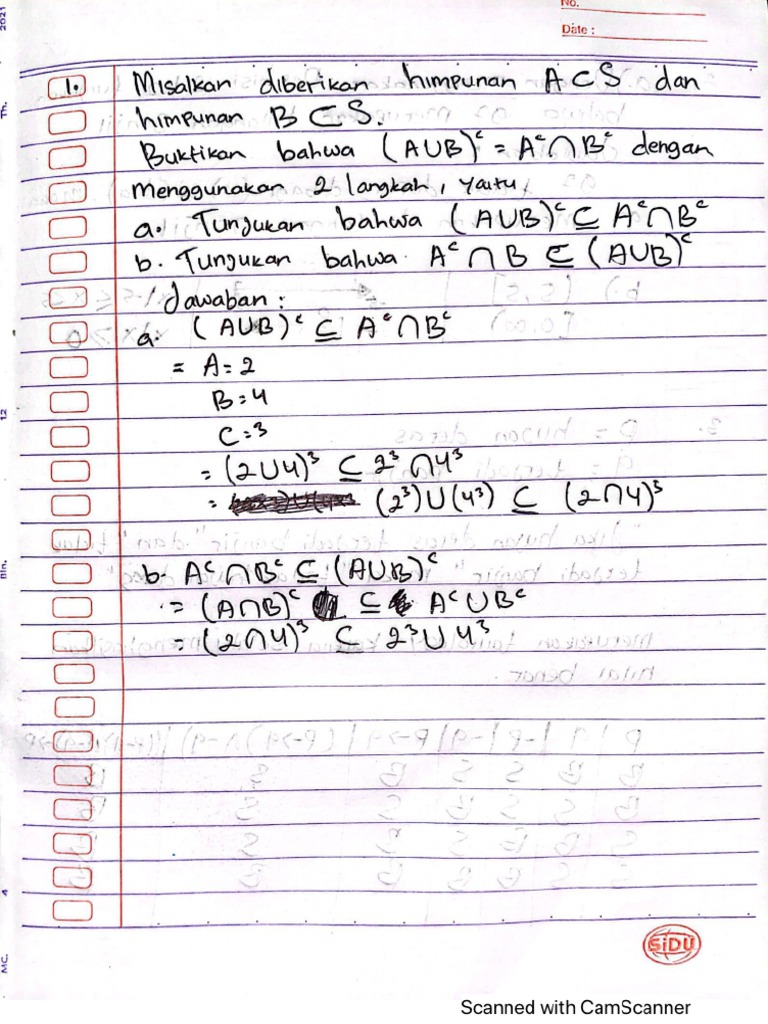 No.
Date :
2021
Th.
12
Bln.
4
MC.
1. Misalkan diberikan himpunan A ⊂ S dan
himpunan B ⊂ S.
Buktikan bahwa (A∪B)ᶜ = Aᶜ∩Bᶜ dengan
menggunakan 2 langkah, yaitu
a. Tunjukan bahwa (A∪B)ᶜ ⊆ Aᶜ∩Bᶜ
b. Tunjukan bahwa Aᶜ∩B ⊆ (A∪B)ᶜ
Jawaban :
a. (A∪B)ᶜ ⊆ Aᶜ∩Bᶜ
= A = 2
B = 4
C = 3
= (2∪4)³ ⊆ 2³∩4³
= (2³)∪(4³) ⊆ (2∩4)³
b. Aᶜ∩Bᶜ ⊆ (A∪B)ᶜ
= (A∩B)ᶜ ⊆ Aᶜ∪Bᶜ
= (2∩4)³ ⊆ 2³∪4³
SiDU
Scanned with CamScanner